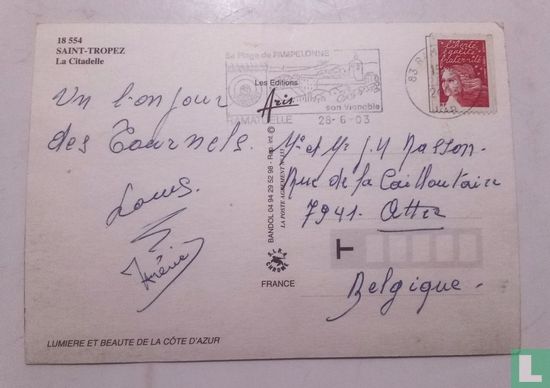 18 554
SAINT-TROPEZ
La Citadelle
Sa Plage de PAMPELONNE
son vignoble
RAMATUELLE 28-6-03
83
Liberté
égalité
fraternité
Les Editions
Aris
Un bonjour
des Tournels.
Louis
BANDOL 04 94 29 52 98 - Rep. int ©
LA POSTE AGREMENT N°
FRANCE
Mr et Me J.M Masson.
Rue de la Cailloutaire
7941. Attre
T
Belgique.
LUMIERE ET BEAUTE DE LA CÔTE D'AZUR